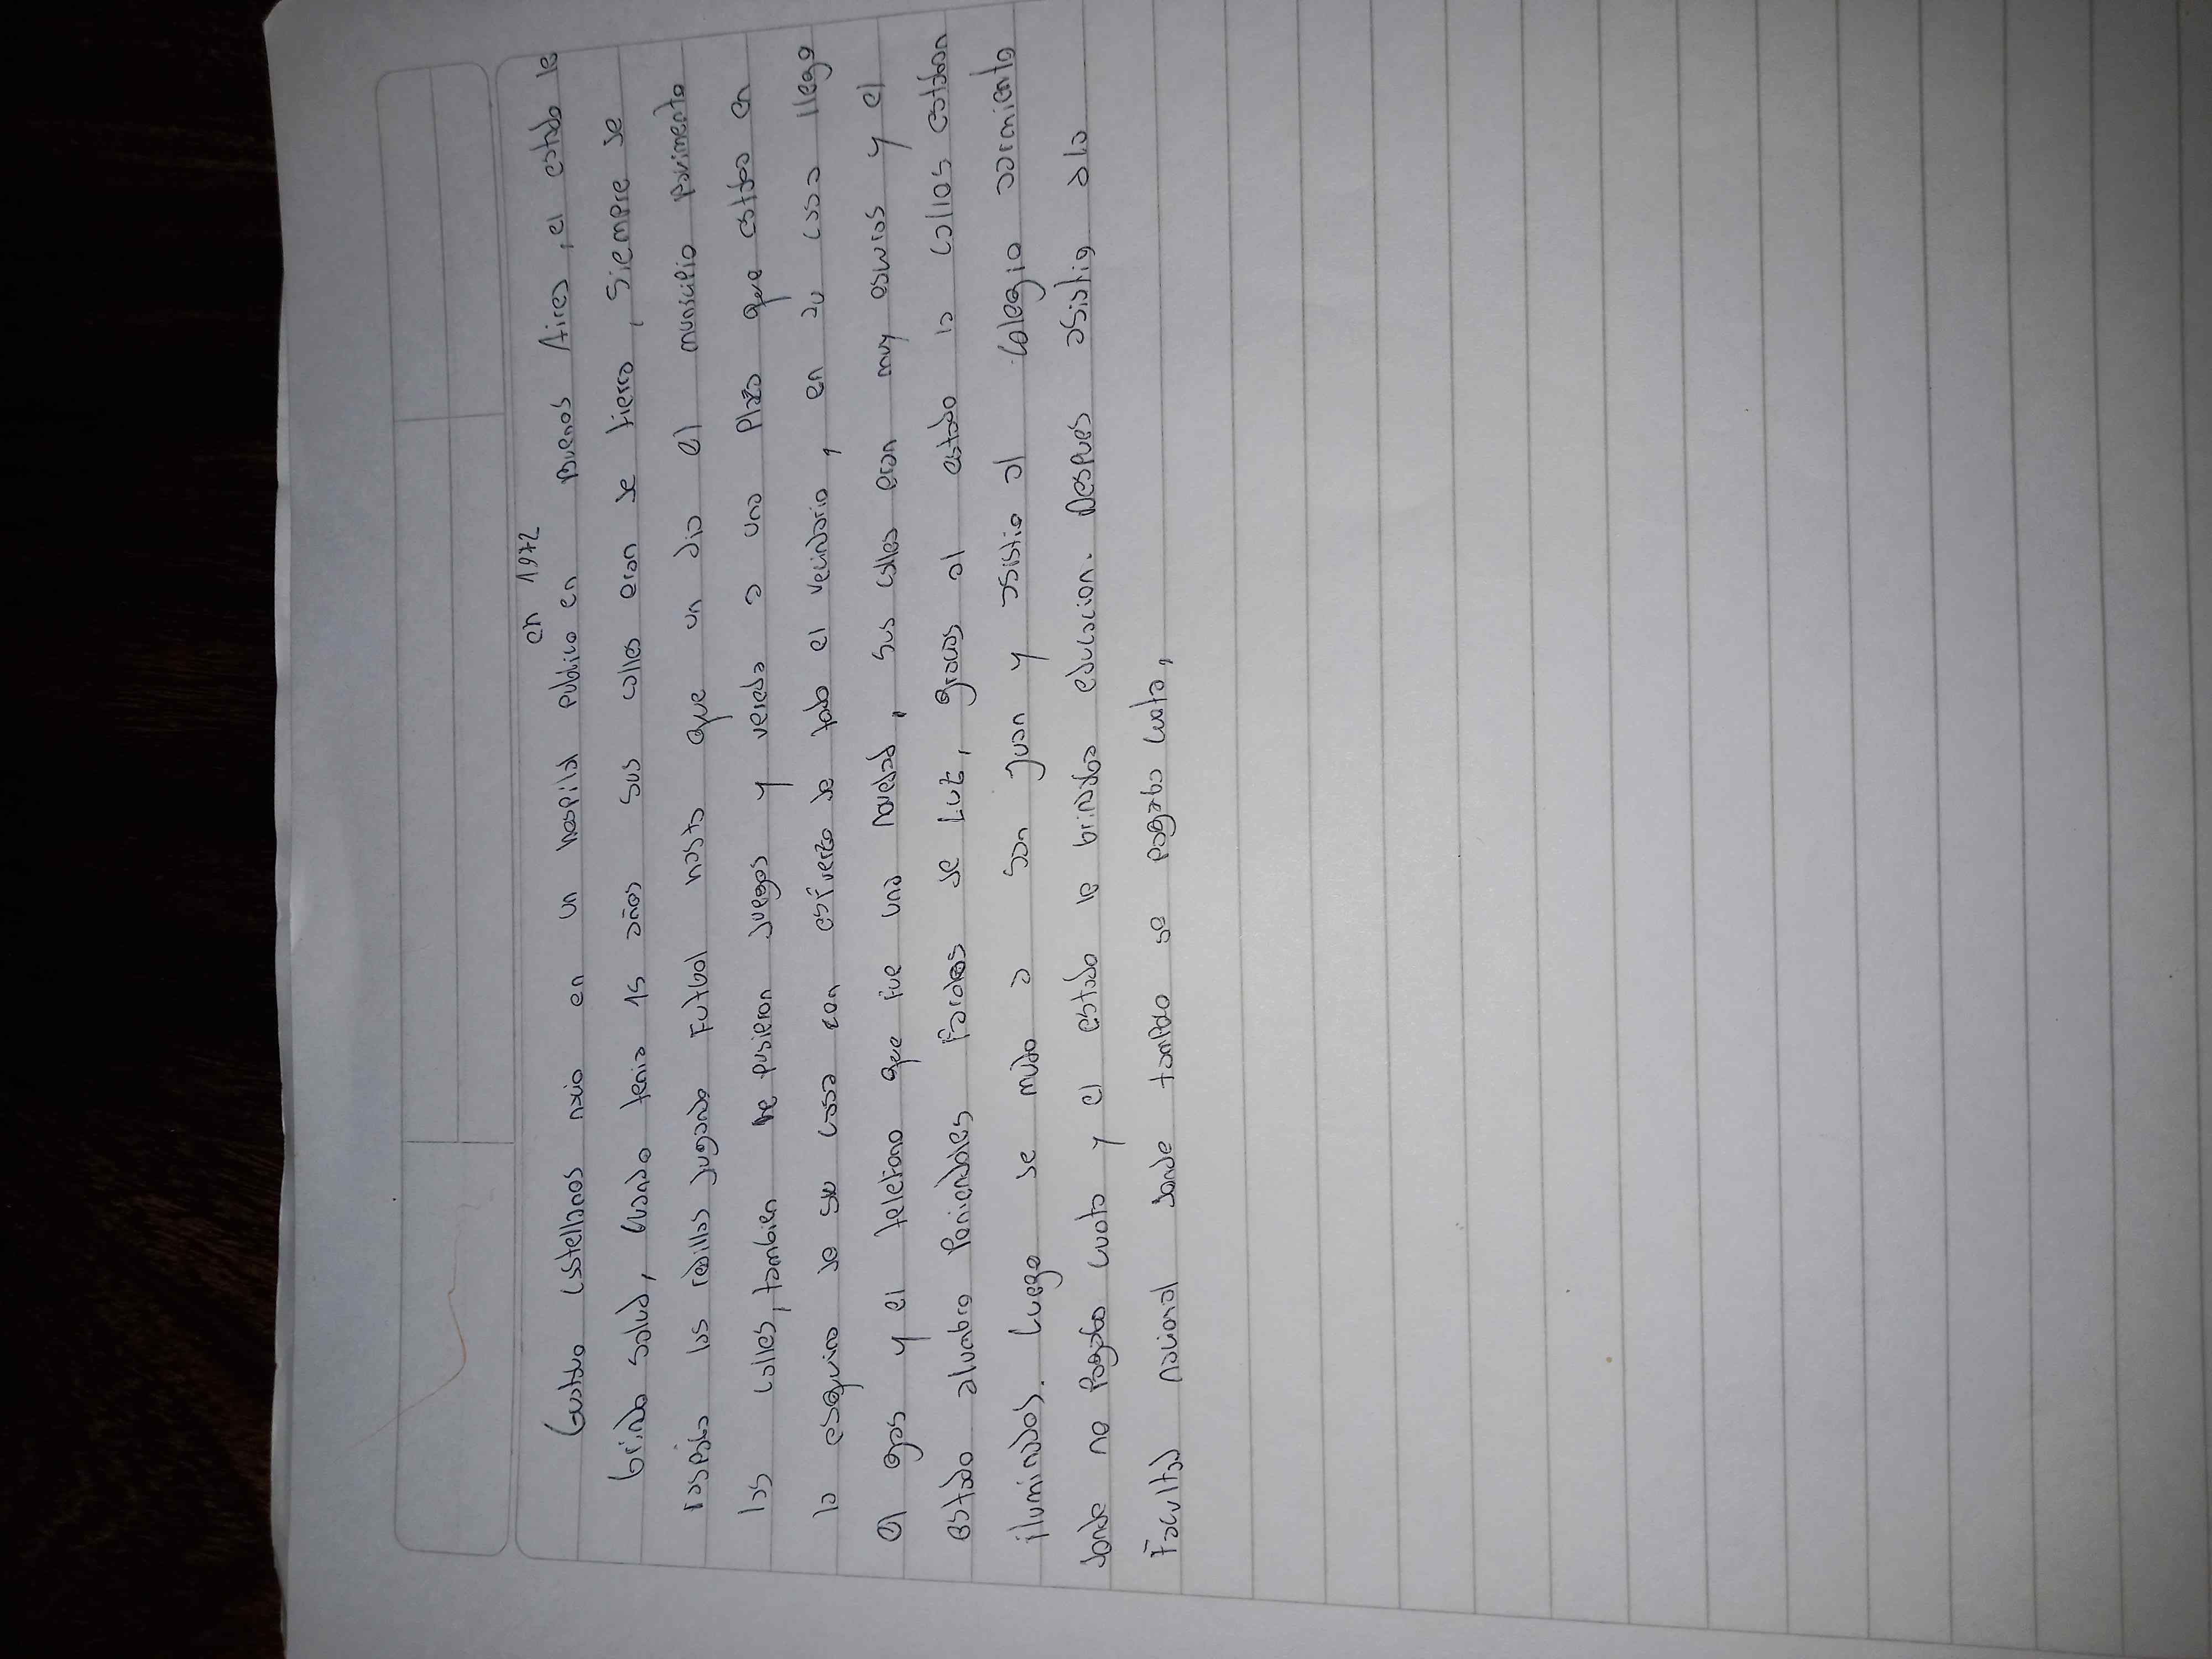 en 1972
Gustavo Castellanos nacio en un hospital publico en Buenos Aires, el estado le
brindo salud, cuando tenia 15 años sus calles eran de tierra, siempre se
raspaba las rodillas jugando Futbol hasta que un dia el municipio pavimento
las calles, tambien le pusieron juegos y vereda a una plaza que estaba en
la esquina de su casa con esfuerzo de todo el vecindario, en su casa llego
el gas y el telefono que fue una novedad, sus calles eran muy oscuras y el
estado alumbro poniendoles Faroles de Luz, gracias al estado la calles estaban
iluminadas. Luego se mudo a San Juan y asistio al colegio sarmiento
donde no pagaba cuota y el estado le brindaba educacion. Despues asistio a la
Facultad nacional donde tampoco se pagaba cuota,